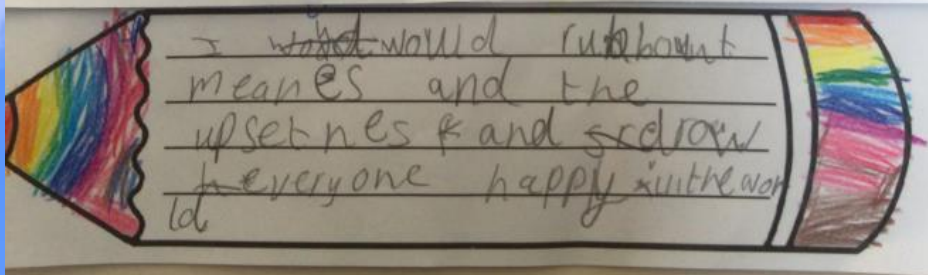 I would rub out
meanes and the
upsetnes and redraw
everyone happy in the wor
ld